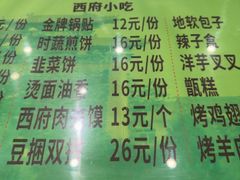 西府小吃
元/份 金牌锅贴 12元/份 地软包子
元/份 时蔬煎饼 16元/份 辣子盒
元/份 韭菜饼 16元/份 洋芋叉叉
元/份 烫面油香 16元/份 甑糕
西府肉夹馍 13元/个 烤鸡翅
豆捆双拼 26元/份 烤羊